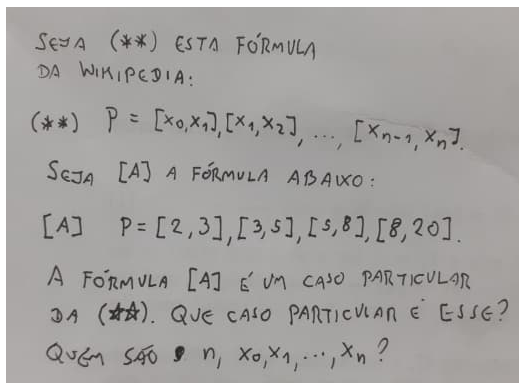 SEJA (**) ESTA FÓRMULA
DA WIKIPEDIA:
(**) P = [x₀,x₁],[x₁,x₂], ..., [xₙ₋₁,xₙ].
SEJA [A] A FÓRMULA ABAIXO:
[A] P=[2,3],[3,5],[5,8],[8,20].
A FÓRMULA [A] É UM CASO PARTICULAR
DA (**). QUE CASO PARTICULAR É ESSE?
QUEM SÃO n, x₀,x₁,...,xₙ?